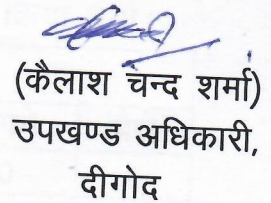 (कैलाश चन्द शर्मा)
उपखण्ड अधिकारी,
दीगोद